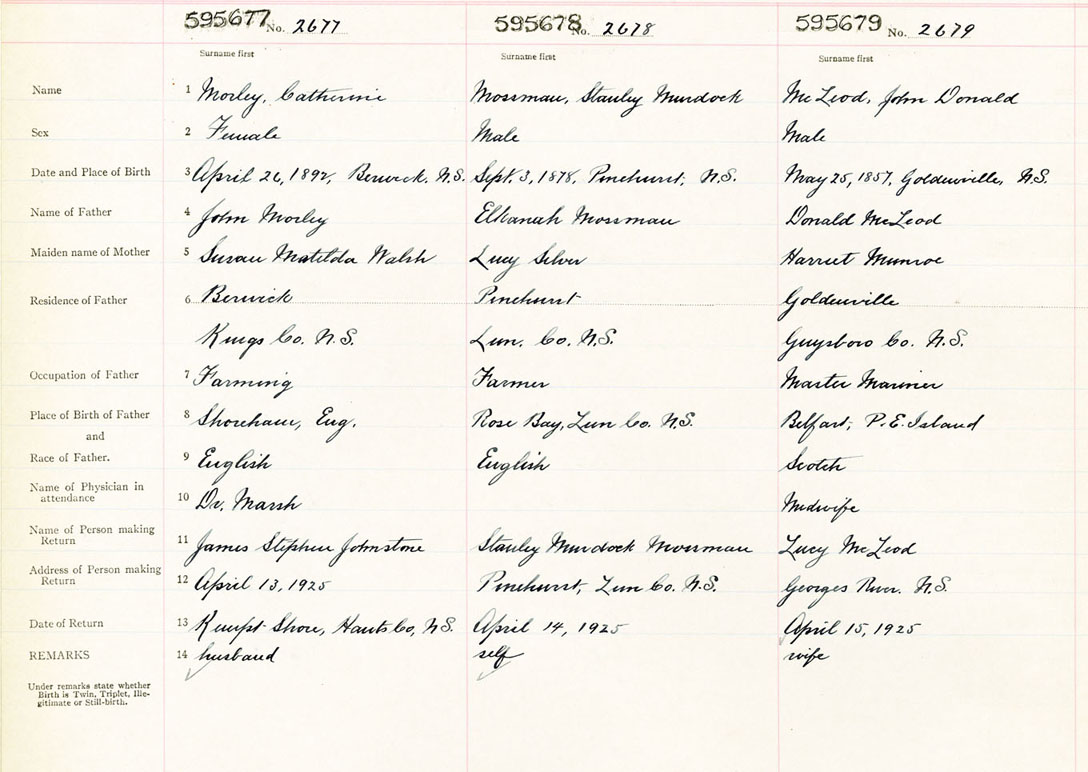 595677 No. 2677 595678 No. 2678 595679 No. 2679
Surname first Surname first Surname first
Name 1 Morley, Catherine Mossman, Stanley Murdock McLeod, John Donald
Sex 2 Female Male Male
Date and Place of Birth 3 April 26, 1892, Berwick, N.S. Sept. 3, 1878, Pinehurst, N.S. May 25, 1857, Goldenville, N.S.
Name of Father 4 John Morley Elkanah Mossman Donald McLeod
Maiden name of Mother 5 Susan Matilda Walsh Lucy Silver Harriet Munroe
Residence of Father 6 Berwick Pinehurst Goldenville
Kings Co. N.S. Lun. Co. N.S. Guysboro Co. N.S.
Occupation of Father 7 Farming Farmer Master Mariner
Place of Birth of Father 8 Shoreham, Eng. Rose Bay, Lun Co. N.S. Belfast, P.E. Island
and
Race of Father. 9 English English Scotch
Name of Physician in
attendance 10 Dr. Marsh Midwife
Name of Person making
Return 11 James Stephen Johnstone Stanley Murdock Mossman Lucy McLeod
Address of Person making
Return 12 April 13, 1925 Pinehurst, Lun Co. N.S. Georges River. N.S.
Date of Return 13 Kempt Shore, Hants Co, N.S. April 14, 1925 April 15, 1925
REMARKS 14 husband self wife
Under remarks state whether
Birth is Twin, Triplet, Ille-
gitimate or Still-birth.